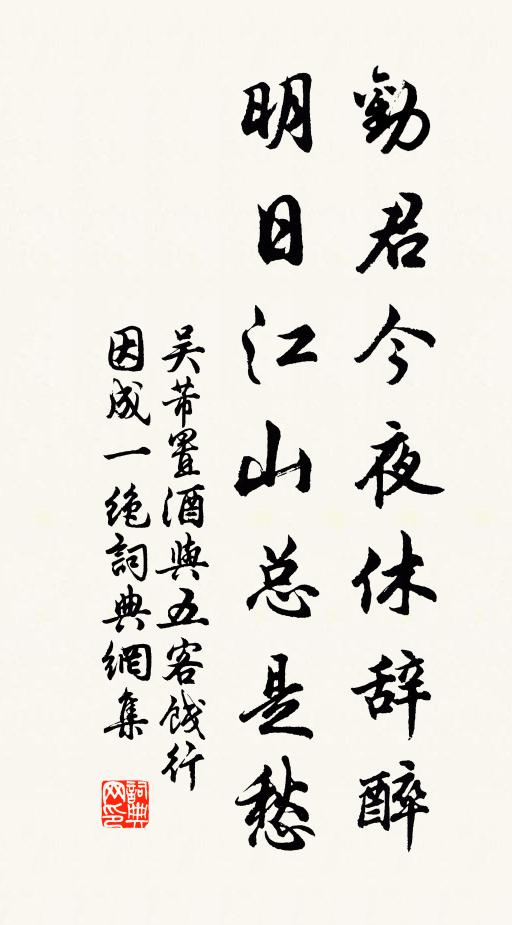 勸君今夜休辞醉
明日江山总是愁
吴芾置酒與五客餞行
因成一绝詞典網集
詞典
网印